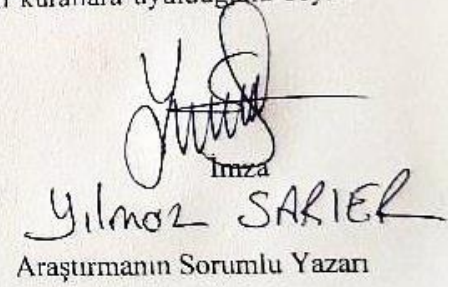 kurallara uyulduğunu
İmza
Yılmaz SARIER
Araştırmanın Sorumlu Yazarı